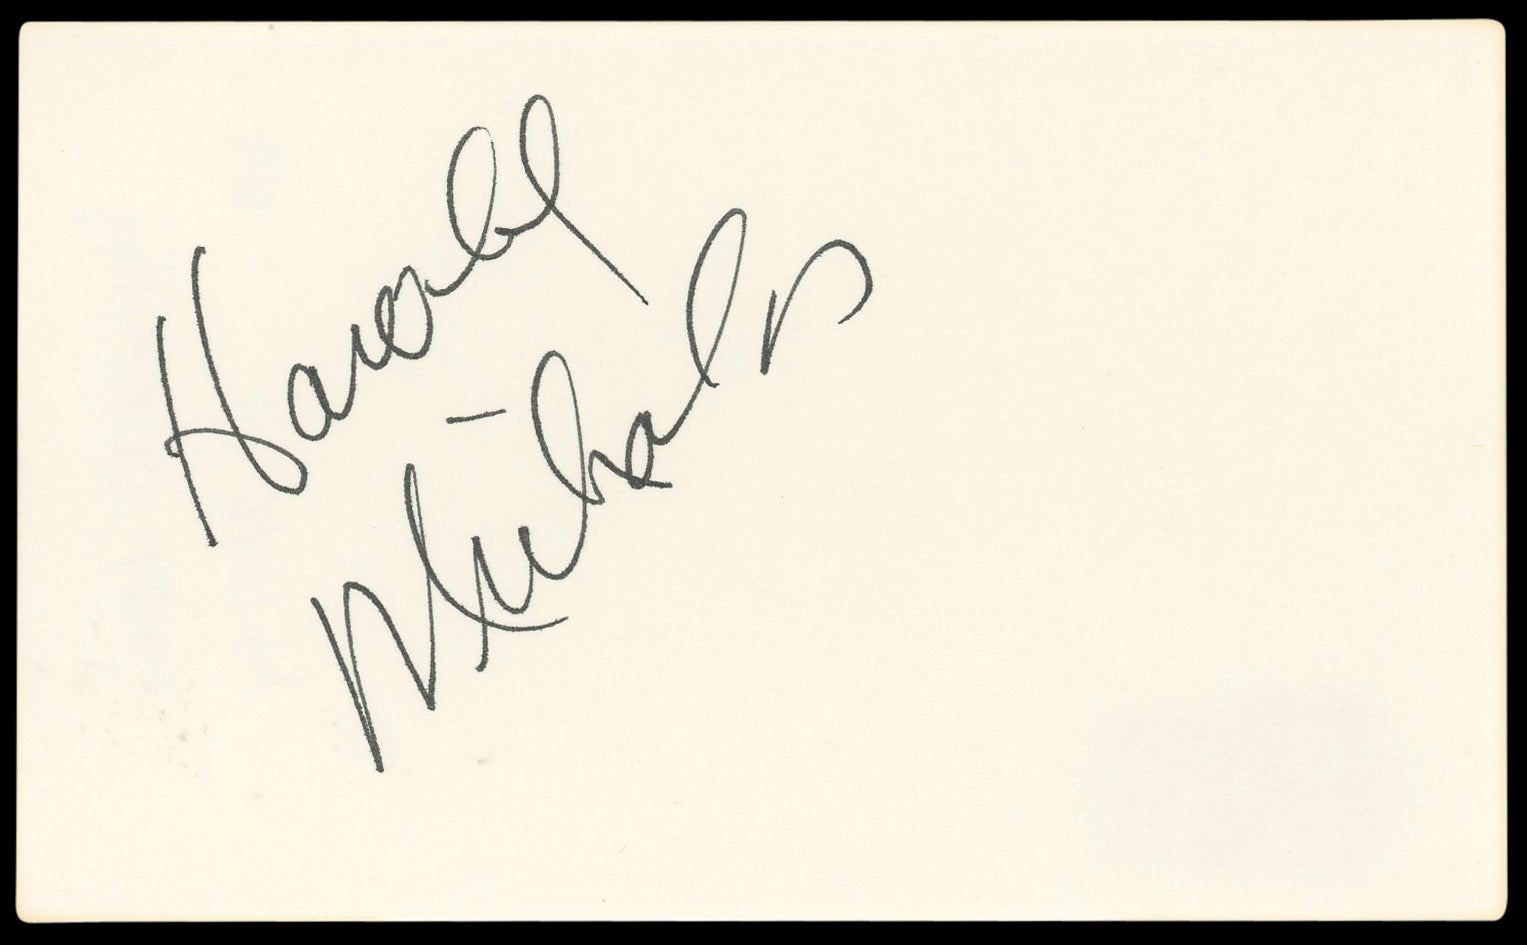 Harold
Nicholas